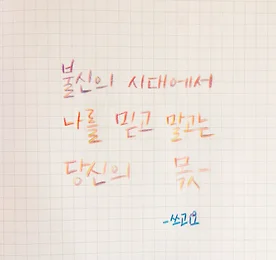 불신의 시대에서
나를 믿고 말고는
당신의 몫-
-쓰고요